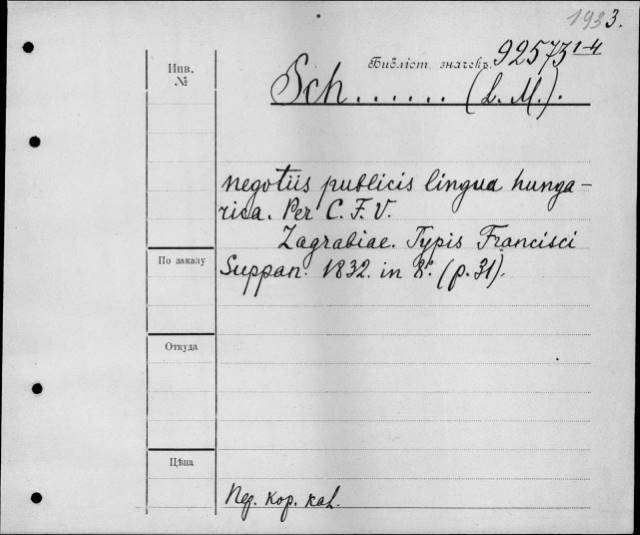 1933.
Библіот. значекъ.
92573 1-4
Инв.
№
Sch...... (L. M.).
negotiis publicis lingua hunga-
rica. Per C. F. V.
Zagrabiae. Typis Francisci
По заказу
Suppan. 1832. in 8º. (p. 31).
Откуда
Цѣна
кор.